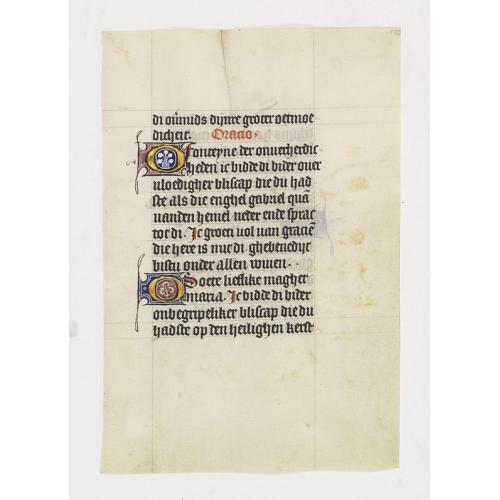 di oūmids dijnre groter oetmoe
dicheit. Oracio.
O fonteyne der onuerherdic
heden ic bidde di bider ouer
uloedigher bliscap die du had
ste als die enghel gabriel quā
uanden hemel neder ende sprac
tot di. Ic groet uol uan graciē
die here is mit di ghebenedijt
bistu onder allen wiuen.
O soete lieflike magher
maria. Ic bidde di bider
onbegripeliker bliscap die du
hadste op den heilighen kerst